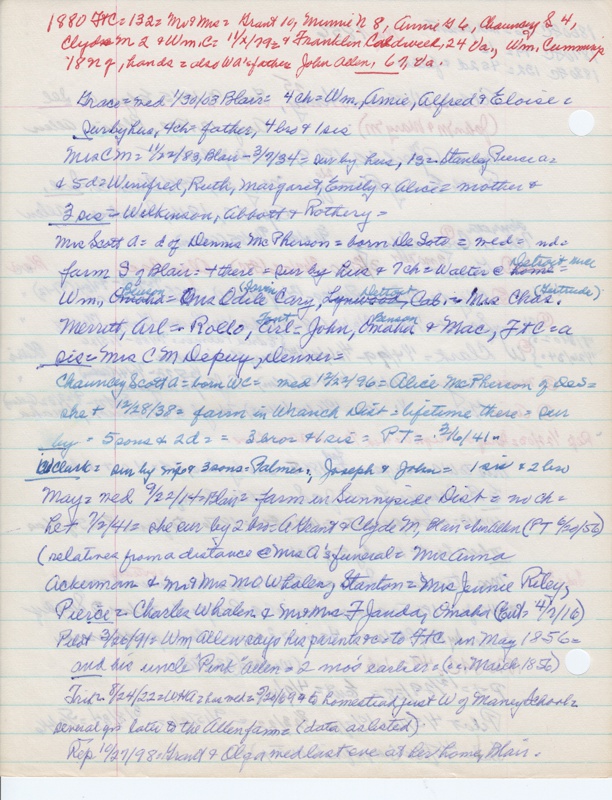 1880 FtC = 132 = Mr & Mrs = Grant 10, Minnie N 8, Annie G 6, Chauncey S 4,
Clyde M 2 & Wm C = 11/2/79 = & Franklin Caldwell, 24 Va, Wm, Cummings
18 N Y, hands = also Wa's father John Allen, 67, Va
Grace = med 1/30/03 Blair = 4 ch = Wm, Amie, Alfred & Eloise =
sur by hus, 4 ch = father, 4 bros & 1 sis
Mrs C M = 11/22/83, Blair - 3/7/34 = sur by hus, 1 s = Stanley Pierce a =
& 5 d = Winifred, Ruth, Margaret, Emily & Alice = mother &
3 sis = Wilkinson, Abbott & Rothery =
Mrs Scott A = d of Dennis McPherson = born De Soto = med = nd =
farm S of Blair = + there = sur by hus & 7 ch = Walter @ home = Detroit
Wm, Omaha = Mrs Odile Cary, Lynwood, Cal. = Mrs Chas. (Gertrude)
Merritt, Arl = Rollo, Arl = John, Omaha & Mac, FtC = a
sis = Mrs C M Depuy, Denver =
Chauncey Scott A = born WC = med 12/22/96 = Alice McPherson of DeS =
she + 12/28/38 = farm in Dist = lifetime there = sur
by = 5 sons & 2 d = = 3 bros & 1 sis = PT = 3/6/41 =
Clark = sur by & 3 sons = Palmer, Joseph & John = 1 sis & 2 bro
May = med 9/22/14 = Blair = farm in Sunnyside Dist = no ch =
7/2/41 = she sur by 2 bro = A Grant & Clyde M, Blair = Allen (PT 6/20/56)
(relatives from a distance @ Mrs A's funeral = Mrs Anna
Ackerman & Mr & Mrs M O Whalen, Stanton = Mrs Jennie Riley,
Pierce = Charles Whalen & Mr & Mrs F Janda, Omaha 4/2/16)
3/26/91 = Wm Allen says his parents & c to FtC in May 1856 =
and his uncle "Pink" Allen = 2 mos earlier = (March 1856)
Trib = 8/24/22 = WHA = has med = & to homestead just W of Maney School =
several yrs later to the Allen farm = (data as listed)
Rep 10/27/98 = Grant & Olga med last eve at her home, Blair.